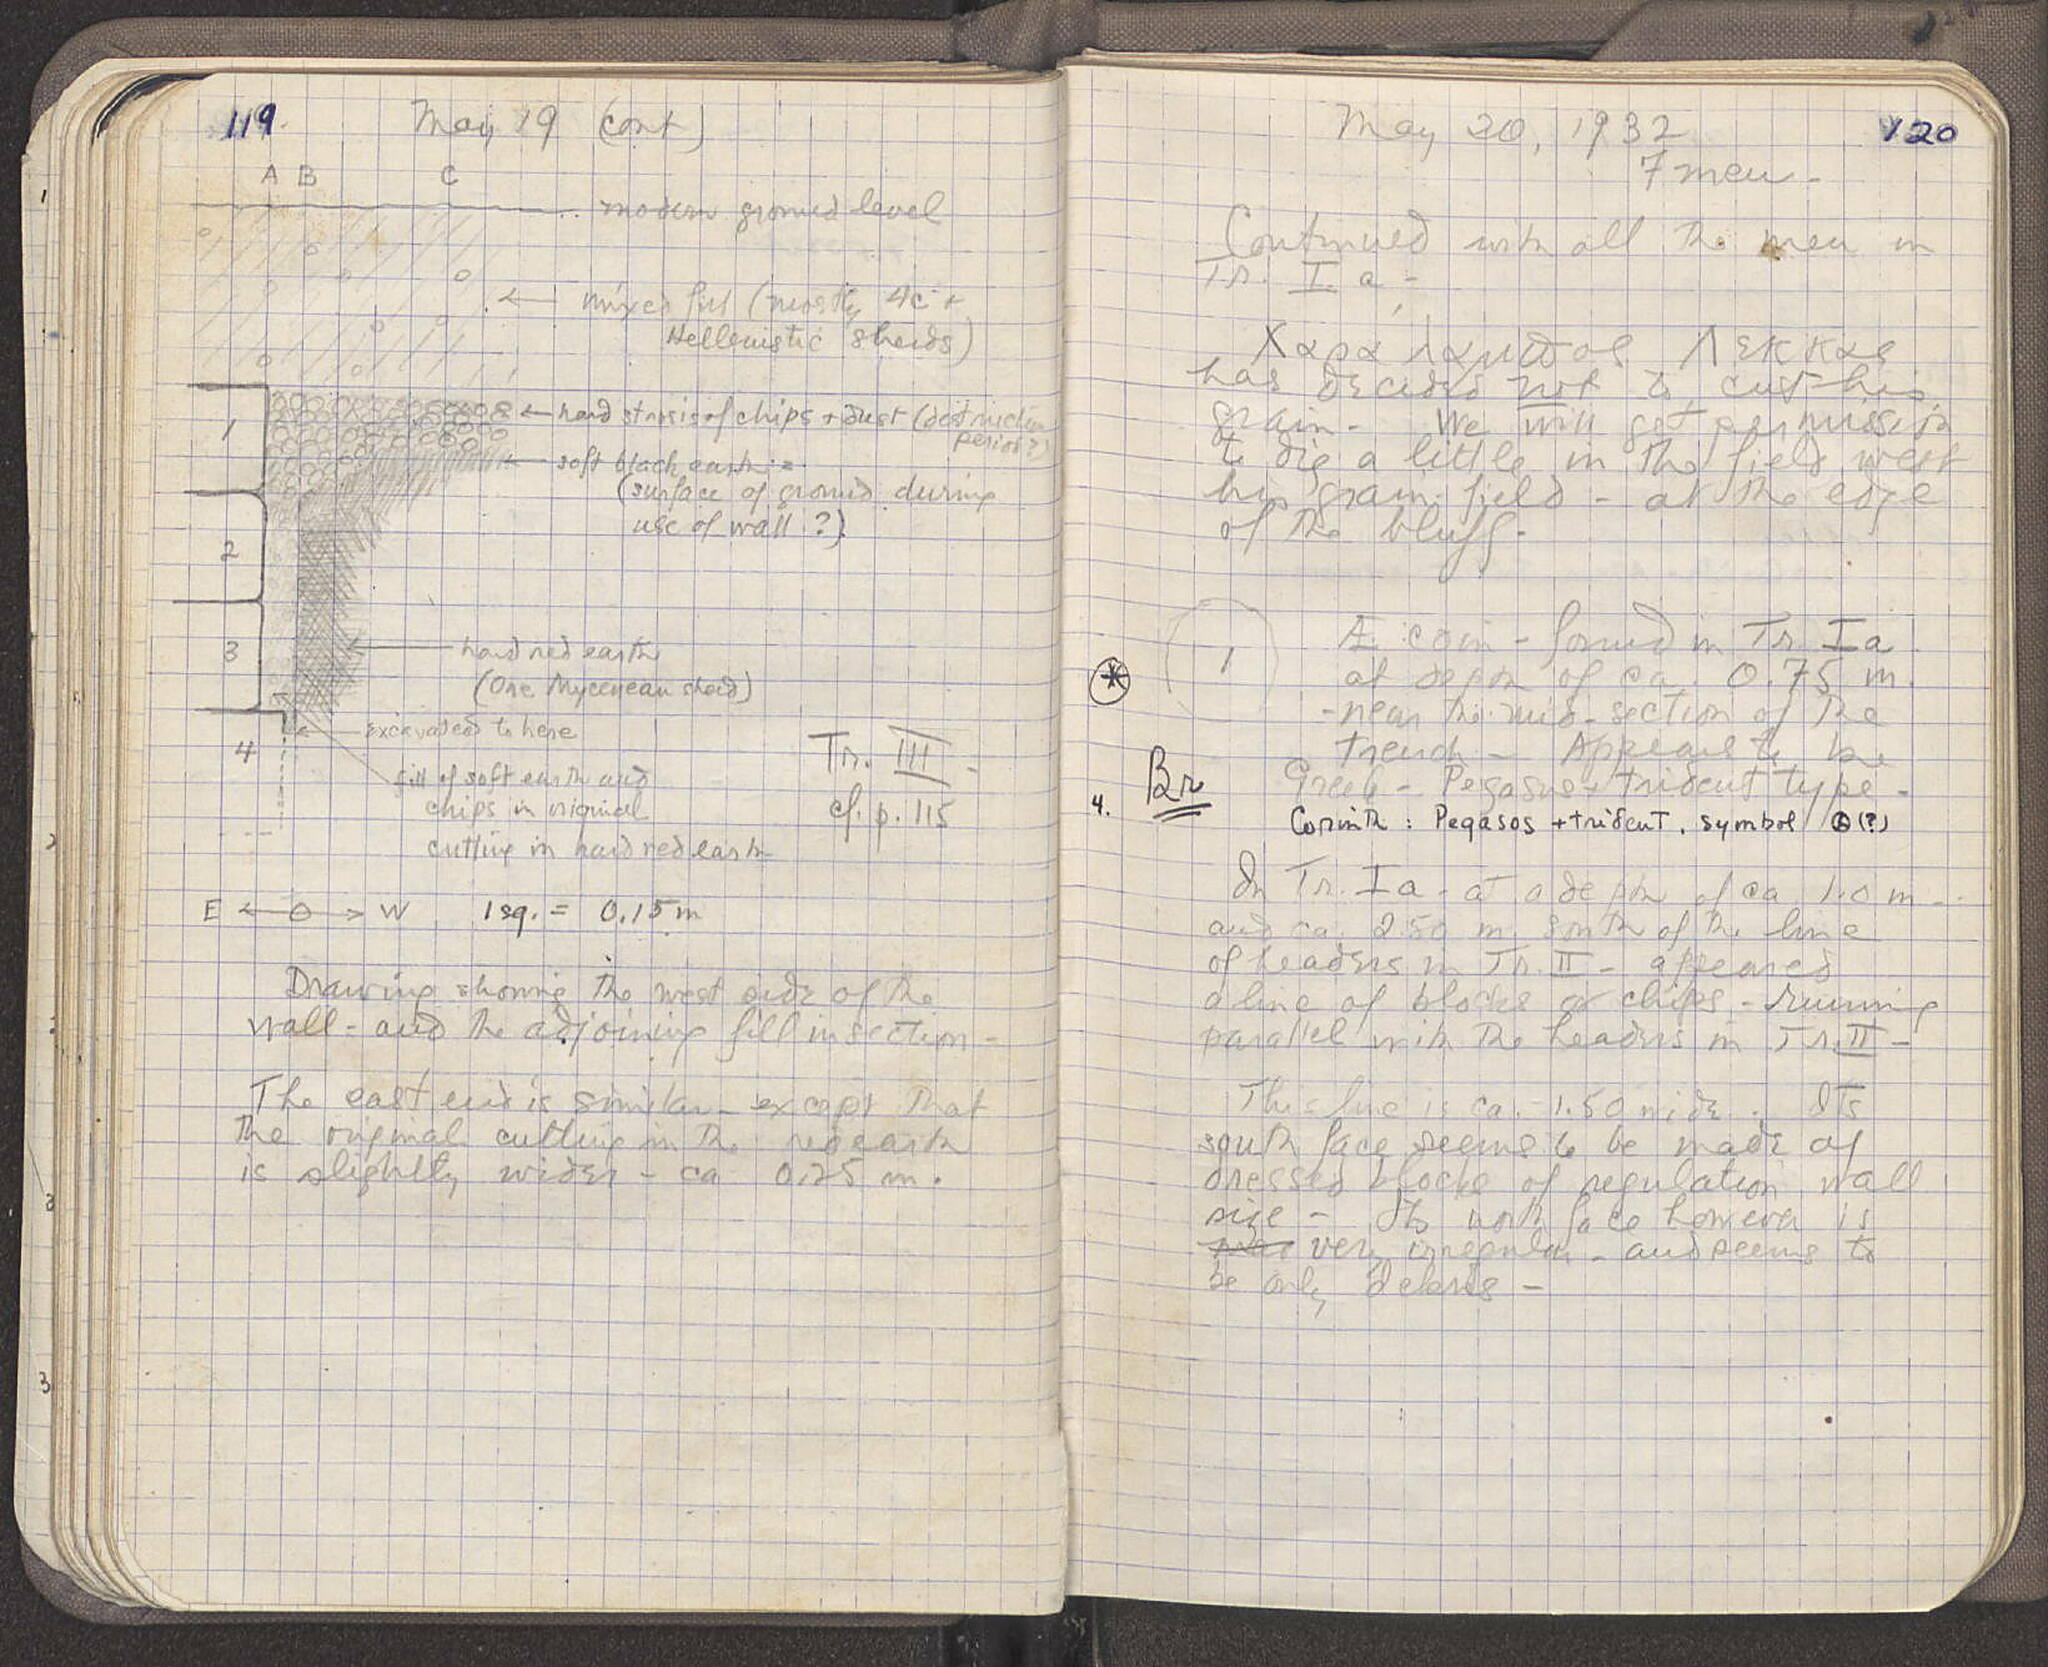 119.
May 19 (cont)
A B C
modern ground level
mixed fill (mostly 4c +
Hellenistic sherds)
1
hard strosis of chips + dust (destruction
period?)
soft black earth =
(surface of ground during
use of wall ?)
2
3
hard red earth
(One Mycenean sherd)
excavated to here
4
fill of soft earth and
chips in original
cutting in hard red earth
Tr. III -
cf. p. 115
E W 1 sq. = 0.15 m
Drawing showing the west side of the
wall - and the adjoining fill in section -
The east end is similar - except that
the original cutting in the red earth
is slightly wider - ca 0.25 m.
120
May 20, 1932
7 men -
Continued with all the men in
Tr. I a -
Χαραλαμπος Λεκκας
has decided not to cut his
grain - We will get permission
to dig a little in the field west
his grain field - at the edge
of the bluff.
1
Æ coin - found in Tr. I a
at depth of ca. 0.75 m.
- near the mid-section of the
trench - Appears to be
Greek - Pegasus + trident type -
Br
4.
Corinth : Pegasos + trident. symbol (?)
In Tr. I a - at a depth of ca 1.0 m -
and ca. 2.50 m. south of the line
of headers in Tr. II - appeared
a line of blocks or chips - running
parallel with the headers in Tr. II -
This line is ca. 1.50 wide. Its
south face seems to be made of
dressed blocks of regulation wall
size - Its north face however is
very irregular - and seems to
be only debris -